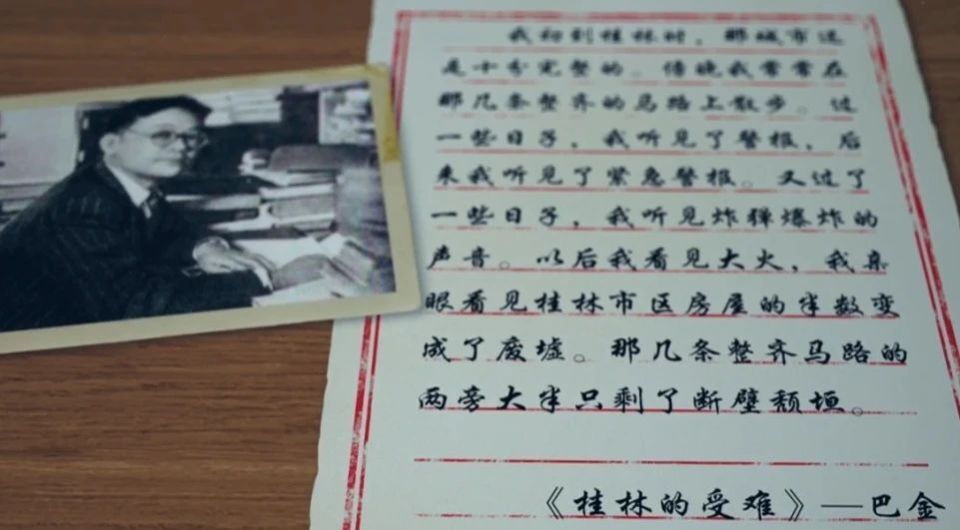 我初到桂林时，那城市还
是十分完整的。傍晚我常常在
那几条整齐的马路上散步。过
一些日子，我听见了警报，后
来我听见了紧急警报。又过了
一些日子，我听见炸弹爆炸的
声音。以后我看见大火，我亲
眼看见桂林市区房屋的半数变
成了废墟。那几条整齐马路的
两旁大半只剩了断壁颓垣。
《桂林的受难》—巴金